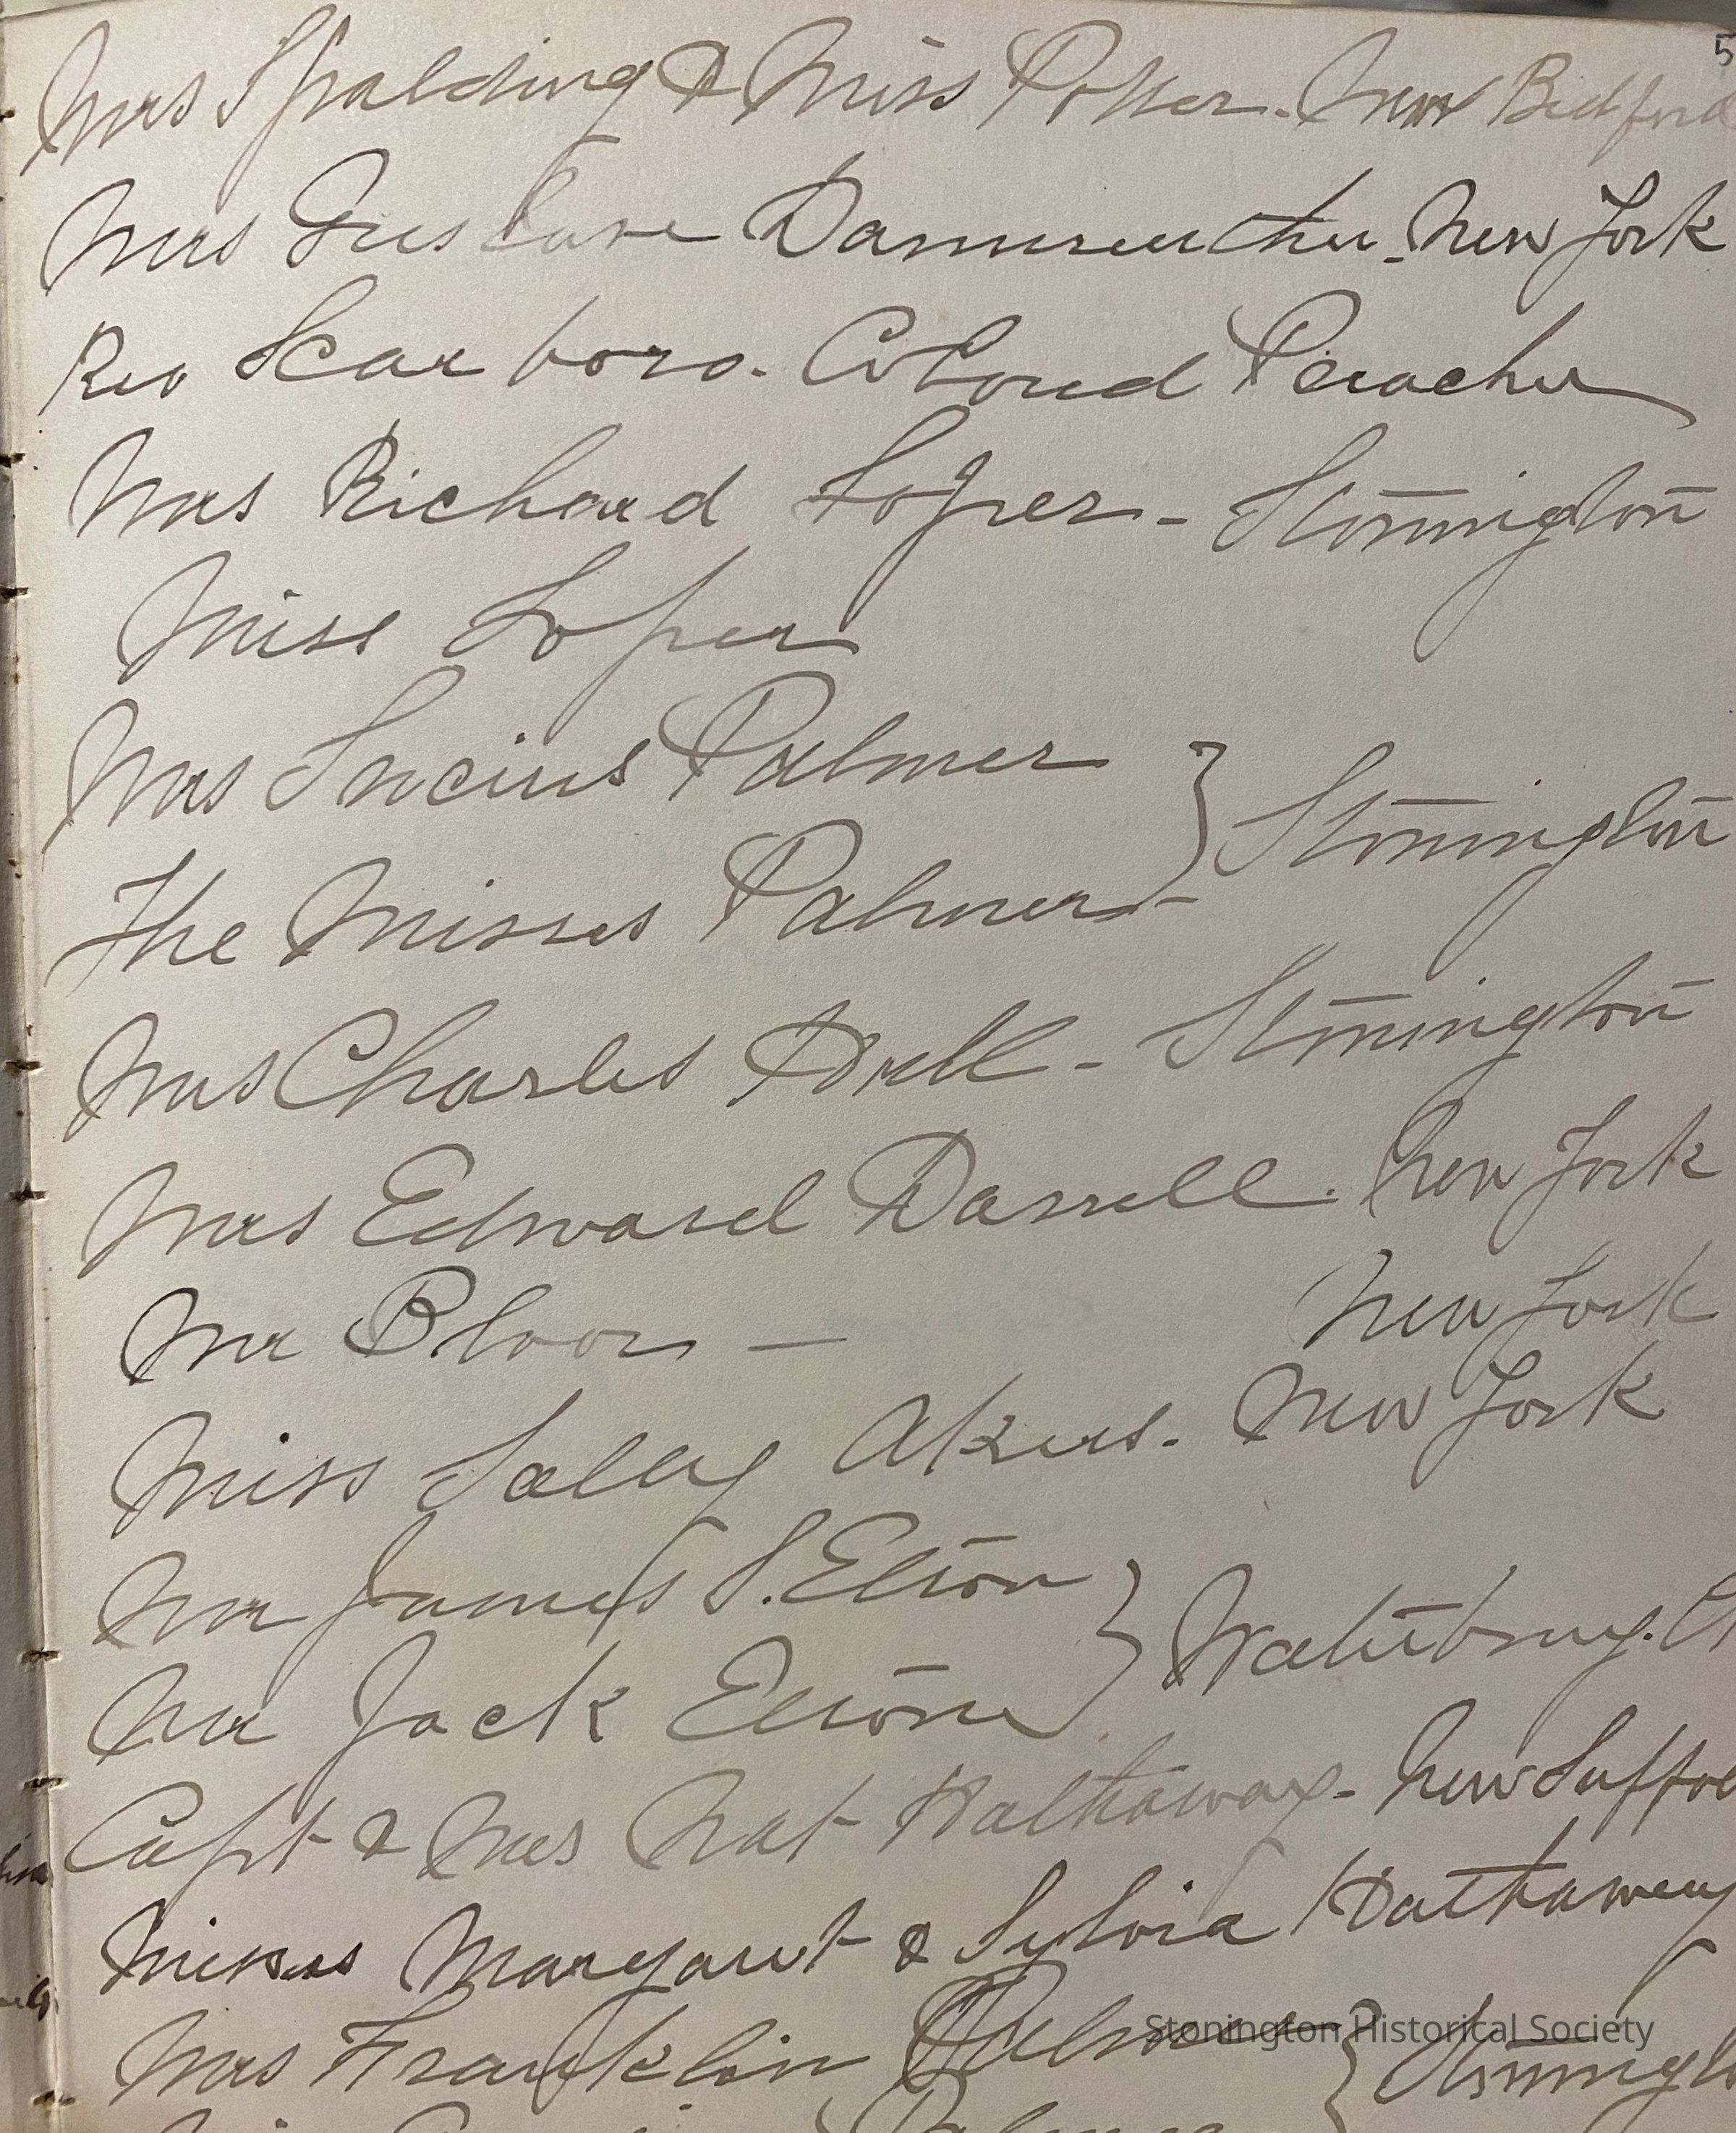 5
Mrs Spalding & Miss Potter. New Bedford
Mrs Gustave Dannreuther. New York
Rev Scarboro. Colored Preacher
Mrs Richard Loper - Stonington
Miss Loper
Mrs Lucius Palmer } Stonington
The Misses Palmer -
Mrs Charles - Stonington
Mrs Edward Darrell. New York
Mr Bloor — New York
Miss Sally Akers. New York
Mr James S. Elton } Waterbury.
Mr Jack Elton
Capt & Mrs Nat Hathaway - New
Misses Margaret & Sylvia Hathaway
Mrs Franklin Palmer }
Palmer
Stonington Historical Society